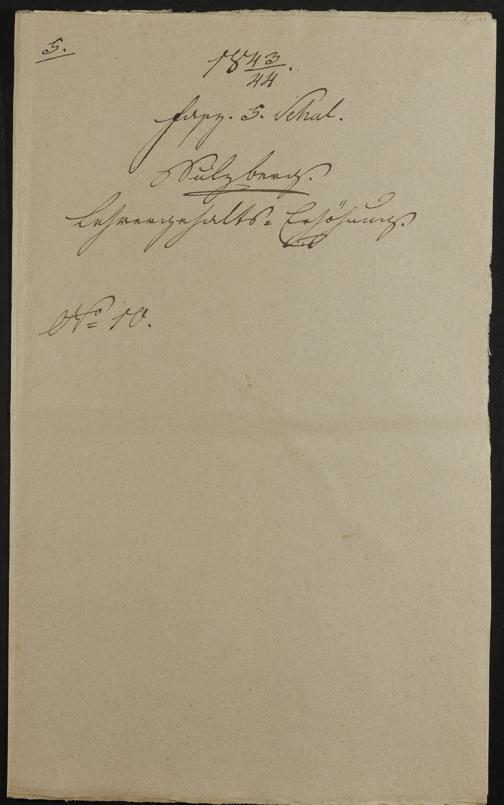 5.
18 43/44.
Fasz. 5. Schul.
Sulzberg.
Lehrergehalts-Erhöhung.
No 10.